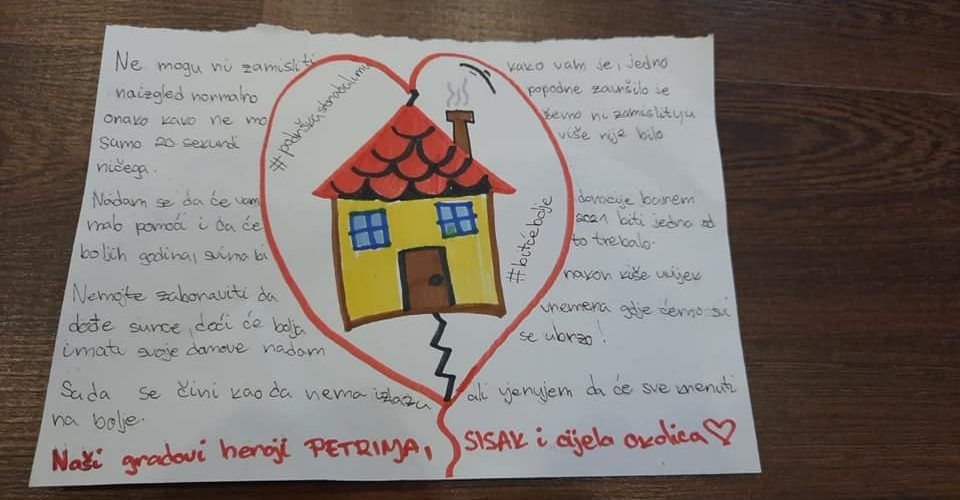 Ne mogu ni zamisliti kako vam je, jedno
naizgled normalno popodne završilo se
onako kako ne mo žemo ni zamisliti, u
samo 20 sekundi više nije bilo
ničega.
Nadam se da će vam donacije barem
malo pomoći i da će 2021 biti jedna od
boljih godina, svima bi to trebalo.
Nemojte zaboraviti da nakon kiše uvijek
dođe sunce, doći će bolja vremena gdje ćemo svi
imati svoje domove nadam se ubrzo!
Sada se čini kao da nema izlaza ali vjerujem da će sve krenuti
na bolje.
#bitćebolje
Naši gradovi heroji PETRINJA, SISAK i cijela okolica